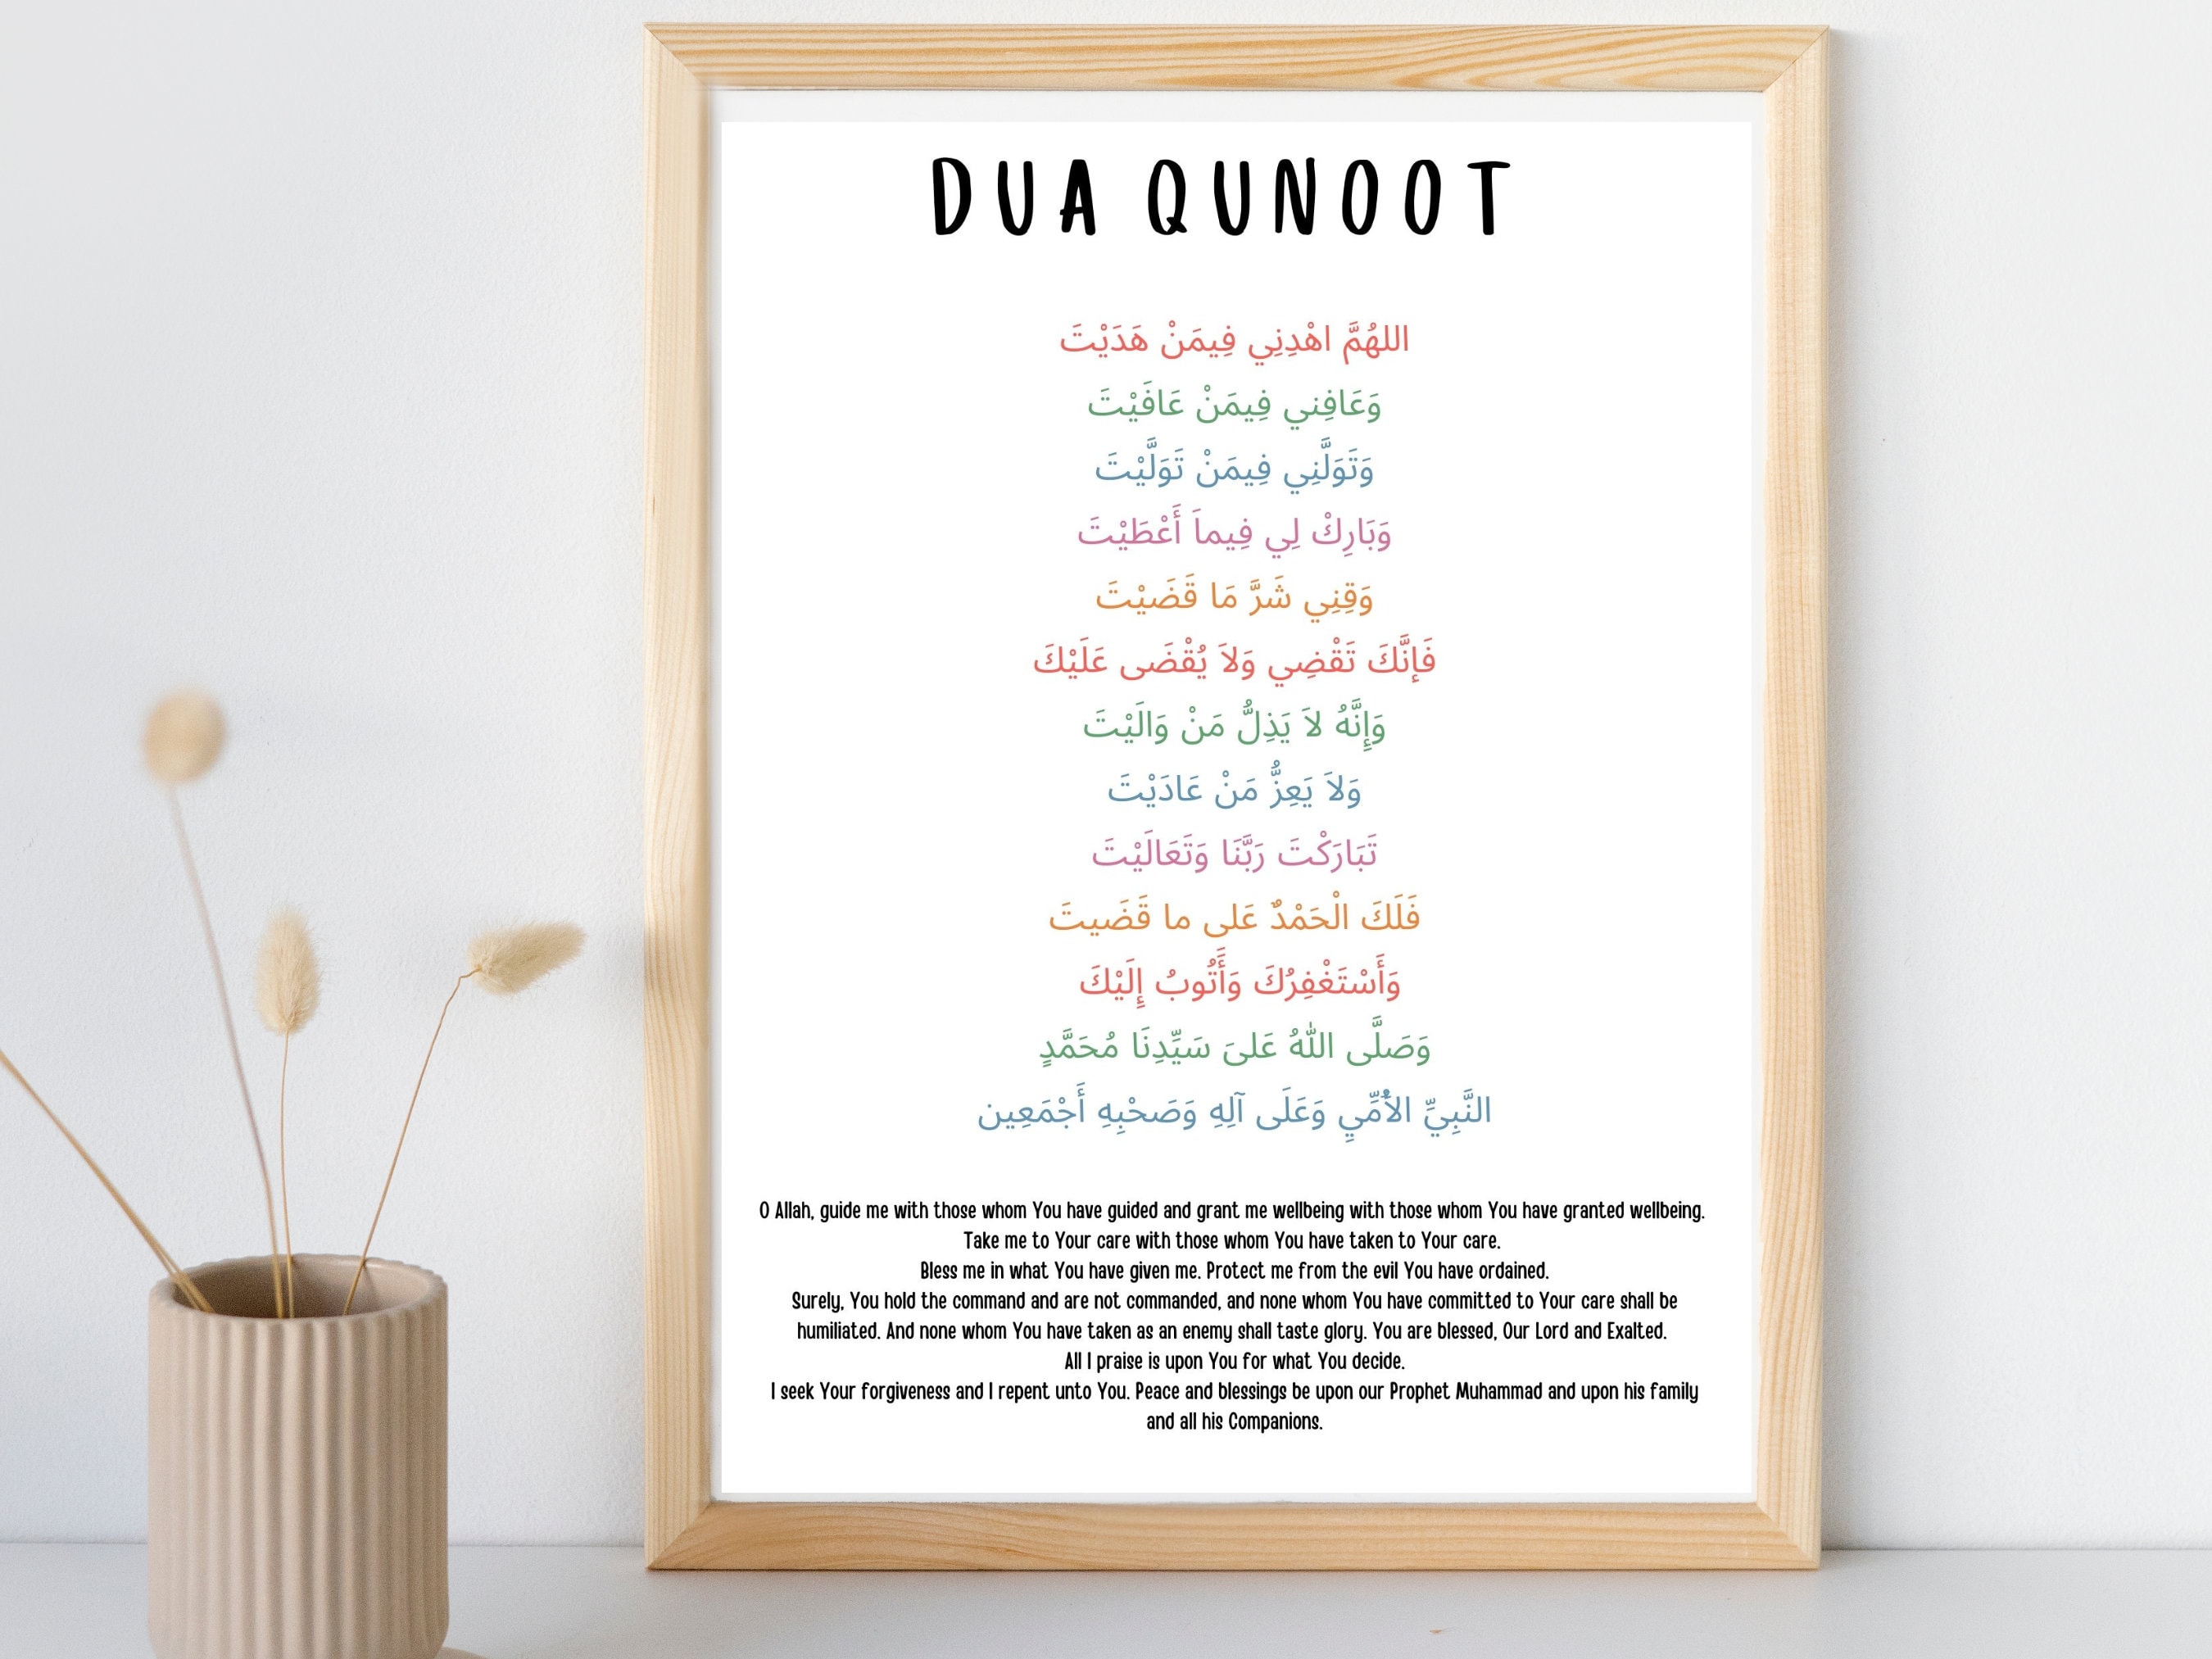 DUA QUNOOT
اللهُمَّ اهْدِنِي فِيمَنْ هَدَيْتَ
وَعَافِنِي فِيمَنْ عَافَيْتَ
وَتَوَلَّنِي فِيمَنْ تَوَلَّيْتَ
وَبَارِكْ لِي فِيماَ أَعْطَيْتَ
وَقِنِي شَرَّ مَا قَضَيْتَ
فَإِنَّكَ تَقْضِي وَلاَ يُقْضَى عَلَيْكَ
وَإِنَّهُ لاَ يَذِلُّ مَنْ وَالَيْتَ
وَلاَ يَعِزُّ مَنْ عَادَيْتَ
تَبَارَكْتَ رَبَّنَا وَتَعَالَيْتَ
فَلَكَ الْحَمْدٌ عَلى ما قَضَيتَ
وَأَسْتَغْفِرُكَ وَأَتُوبُ إِلَيْكَ
وَصَلَّى اللّٰهُ عَلىَ سَيِّدِنَا مُحَمَّدٍ
النَّبِيِّ الأُمِّيِ وَعَلَى آلِهِ وَصَحْبِهِ أَجْمَعِين
O Allah, guide me with those whom You have guided and grant me wellbeing with those whom You have granted wellbeing.
Take me to Your care with those whom You have taken to Your care.
Bless me in what You have given me. Protect me from the evil You have ordained.
Surely, You hold the command and are not commanded, and none whom You have committed to Your care shall be
humiliated. And none whom You have taken as an enemy shall taste glory. You are blessed, Our Lord and Exalted.
All I praise is upon You for what You decide.
I seek Your forgiveness and I repent unto You. Peace and blessings be upon our Prophet Muhammad and upon his family
and all his Companions.